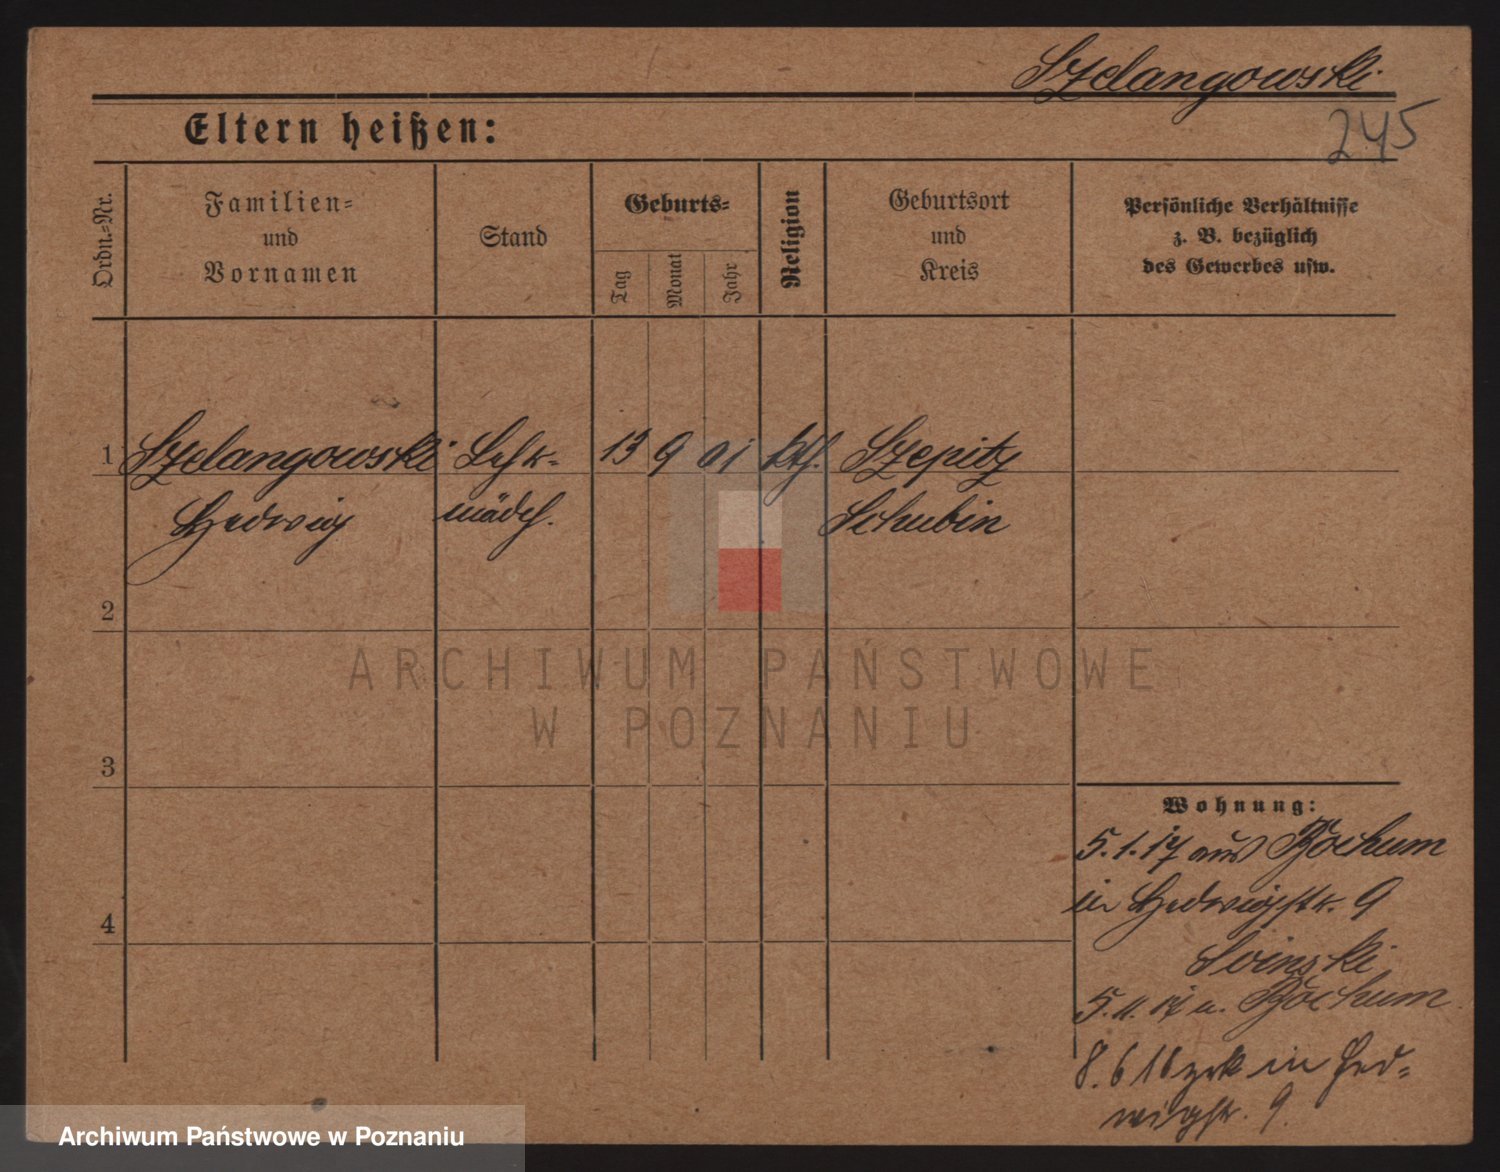 Szelangowski
245
Eltern heißen:
Ordn.-Nr.
Familien-
und
Vornamen
Stand
Geburts-
Tag
Monat
Jahr
Religion
Geburtsort
und
Kreis
Persönliche Verhältnisse
z. B. bezüglich
des Gewerbes usw.
1 Szelangowski 13 9 01 kth. Szepitz
Hedwig mädch. Schubin
2
ARCHIWUM PAŃSTWOWE
W POZNANIU
3
Wohnung:
5.1.17 aus Bochum
in Hedwigstr. 9
4
Soinski
5.11.17 n. Bochum
8.6 18 zrk in Hed-
wigstr. 9.
Archiwum Państwowe w Poznaniu